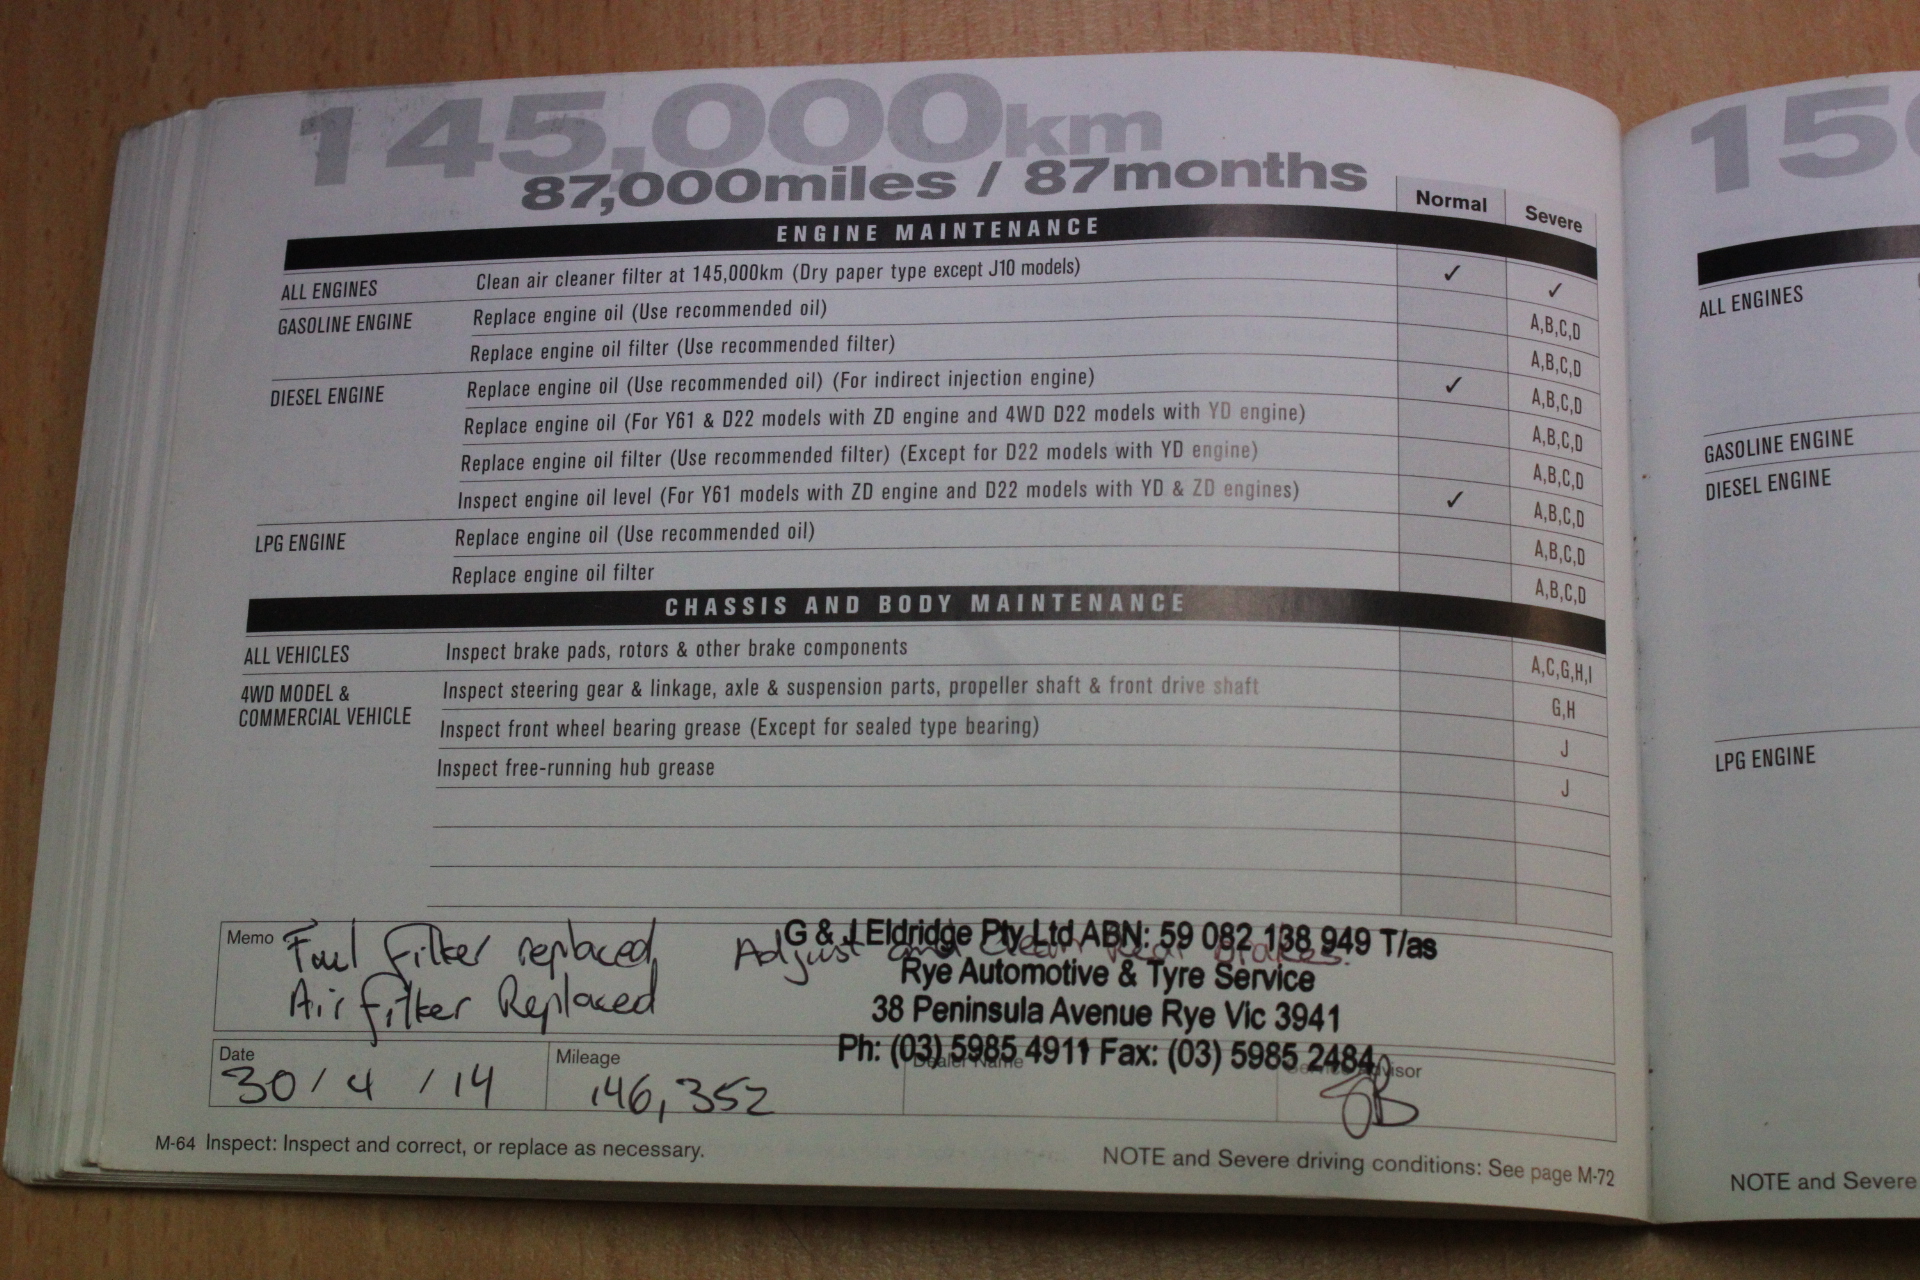 145,000km
87,000miles / 87months
Normal Severe
ENGINE MAINTENANCE
ALL ENGINES Clean air cleaner filter at 145,000km (Dry paper type except J10 models) ✓ ✓
GASOLINE ENGINE Replace engine oil (Use recommended oil) A,B,C,D
Replace engine oil filter (Use recommended filter) A,B,C,D
DIESEL ENGINE Replace engine oil (Use recommended oil) (For indirect injection engine) ✓ A,B,C,D
Replace engine oil (For Y61 & D22 models with ZD engine and 4WD D22 models with YD engine) A,B,C,D
Replace engine oil filter (Use recommended filter) (Except for D22 models with YD engine) A,B,C,D
Inspect engine oil level (For Y61 models with ZD engine and D22 models with YD & ZD engines) ✓ A,B,C,D
LPG ENGINE Replace engine oil (Use recommended oil) A,B,C,D
Replace engine oil filter A,B,C,D
CHASSIS AND BODY MAINTENANCE
ALL VEHICLES Inspect brake pads, rotors & other brake components A,C,G,H,I
4WD MODEL &
COMMERCIAL VEHICLE
Inspect steering gear & linkage, axle & suspension parts, propeller shaft & front drive shaft G,H
Inspect front wheel bearing grease (Except for sealed type bearing) J
Inspect free-running hub grease J
Memo Fuel filter replaced, Adjust and Clean Rear Brakes.
Air filter Replaced
G & J Eldridge Pty Ltd ABN: 59 082 138 949 T/as
Rye Automotive & Tyre Service
38 Peninsula Avenue Rye Vic 3941
Ph: (03) 5985 4911 Fax: (03) 5985 2484
Date Mileage Dealer Name Service Advisor
30 / 4 / 14 146,352
M-64 Inspect: Inspect and correct, or replace as necessary.
NOTE and Severe driving conditions: See page M-72
15
ALL ENGINES
GASOLINE ENGINE
DIESEL ENGINE
LPG ENGINE
NOTE and Severe